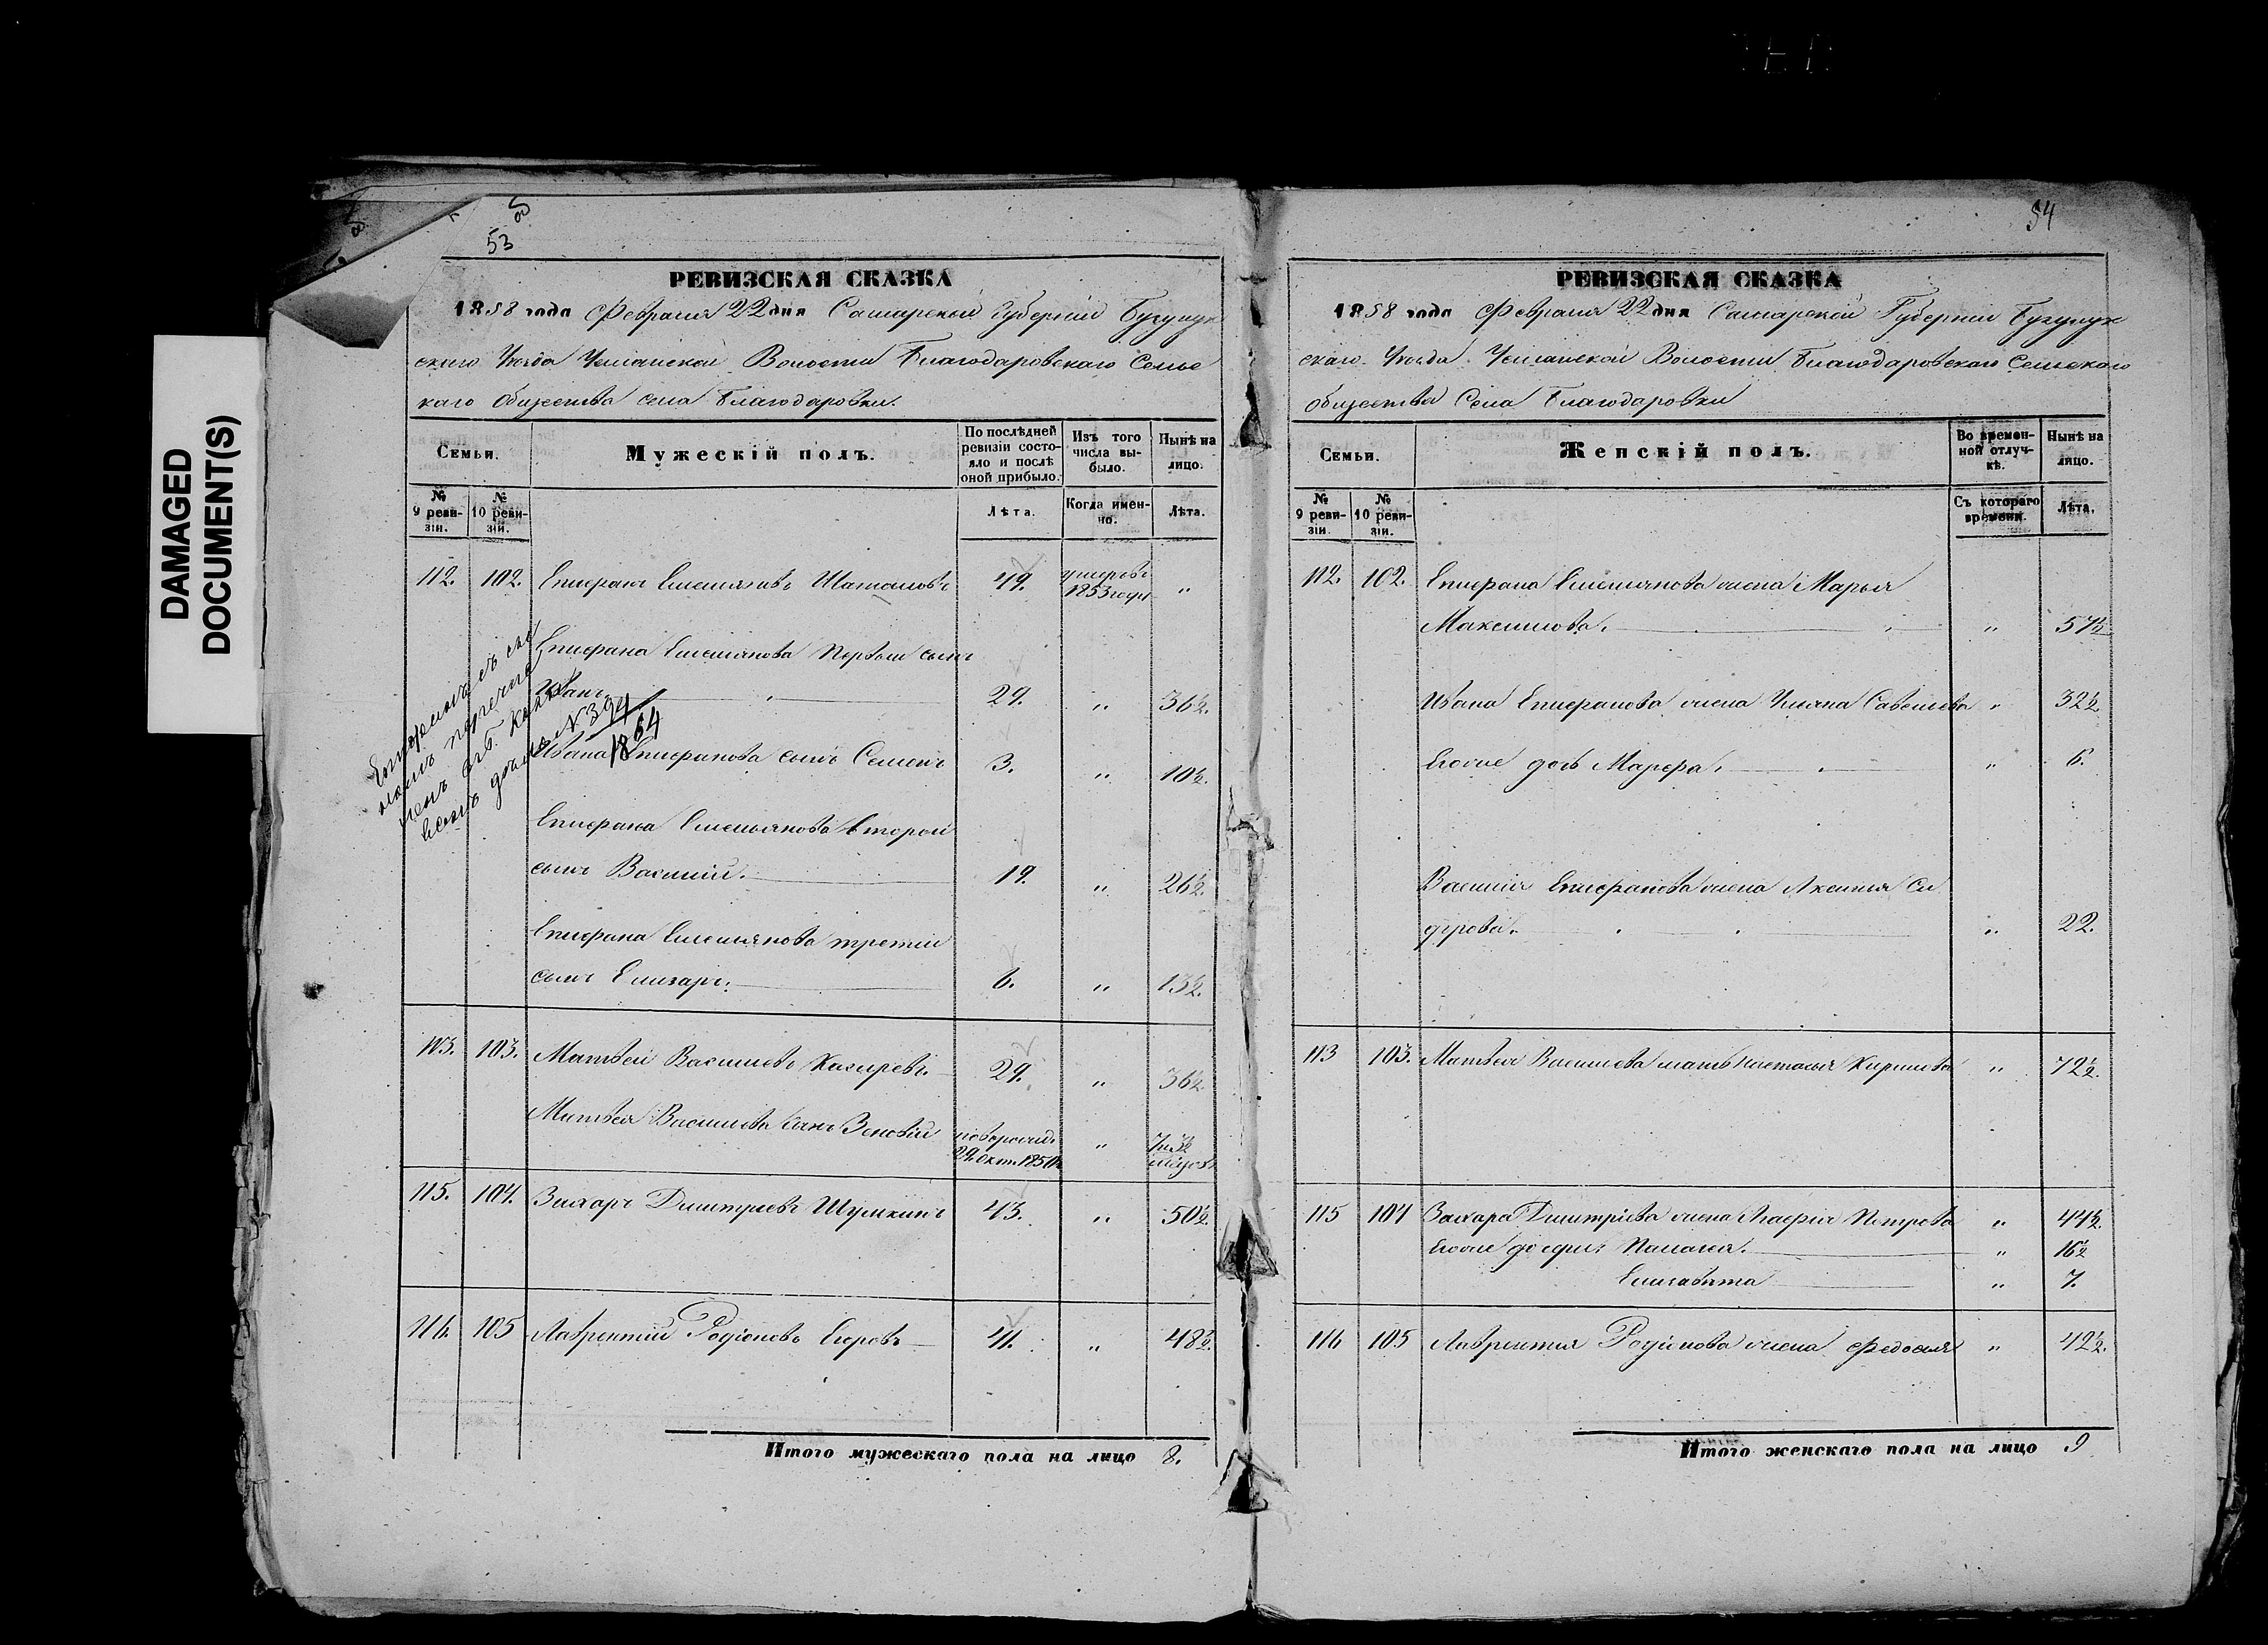 DAMAGED
DOCUMENT(S)
53
РЕВИЗСКАЯ СКАЗКА
1858 года Февраля 22 дня Самарской Губерніи Бугурус
скаго Уѣзда Волости Благодаровскаго Сельс
каго Общества села Благодаровки.
Семьи.
Мужескій полъ.
По послѣдней ревизіи состояло и послѣ оной прибыло.
Изъ того числа выбыло.
Нынѣ на лицо.
№ 9 ревизіи.
№ 10 ревизіи.
Лѣта.
Когда именно.
Лѣта.
112. 102. Епифанъ Емельяновъ 49. умеръ въ 1853 году „
Епифана Емельянова первый сынъ
Иванъ 29. „ 36½.
Ивана Епифанова сынъ Семенъ 3. „ 10½.
Епифана Емельянова второй
сынъ Василий. 19. „ 26½.
Епифана Емельянова третий
сынъ Елизаръ. 6. „ 13½.
№ 394
1864
113. 103. Матвей Васильевъ 29. „ 36½
Матвея Васильева сынъ Зеновій новорожд. „
115. 104. Захаръ Дмитріевъ Шумкинъ 43. „ 50½.
116. 105 Лаврентій Родіоновъ Егоровъ 41. „ 48½.
Итого мужескаго пола на лицо 8.
54
РЕВИЗСКАЯ СКАЗКА
1858 года Февраля 22 дня Самарской Губерніи Бугурус
скаго Уѣзда Волости Благодаровскаго Сельскаго
общества Села Благодаровки
Семьи.
Женскій полъ.
Во временной отлучкѣ.
Нынѣ на лицо.
№ 9 ревизіи.
№ 10 ревизіи.
Съ котораго времени.
Лѣта.
112. 102. Епифана Емельянова жена Марья
Максимова. „ 57½
Ивана Епифанова жена Ульяна Савельева „ 32½
Его же дочь Марфа. „ 6.
Василия Епифанова жена Аксинья Си
дорова. „ 22.
113 103. Матвея Васильева мать Наталья Кирилова „ 72½.
115 104 Захара Дмитріева жена Петрова „ 44½.
Его же дочери: Палагея. „ 16½
Елизавета „ 7.
116 105 Лаврентия Родіонова жена Федосья „ 42½.
Итого женскаго пола на лицо 9